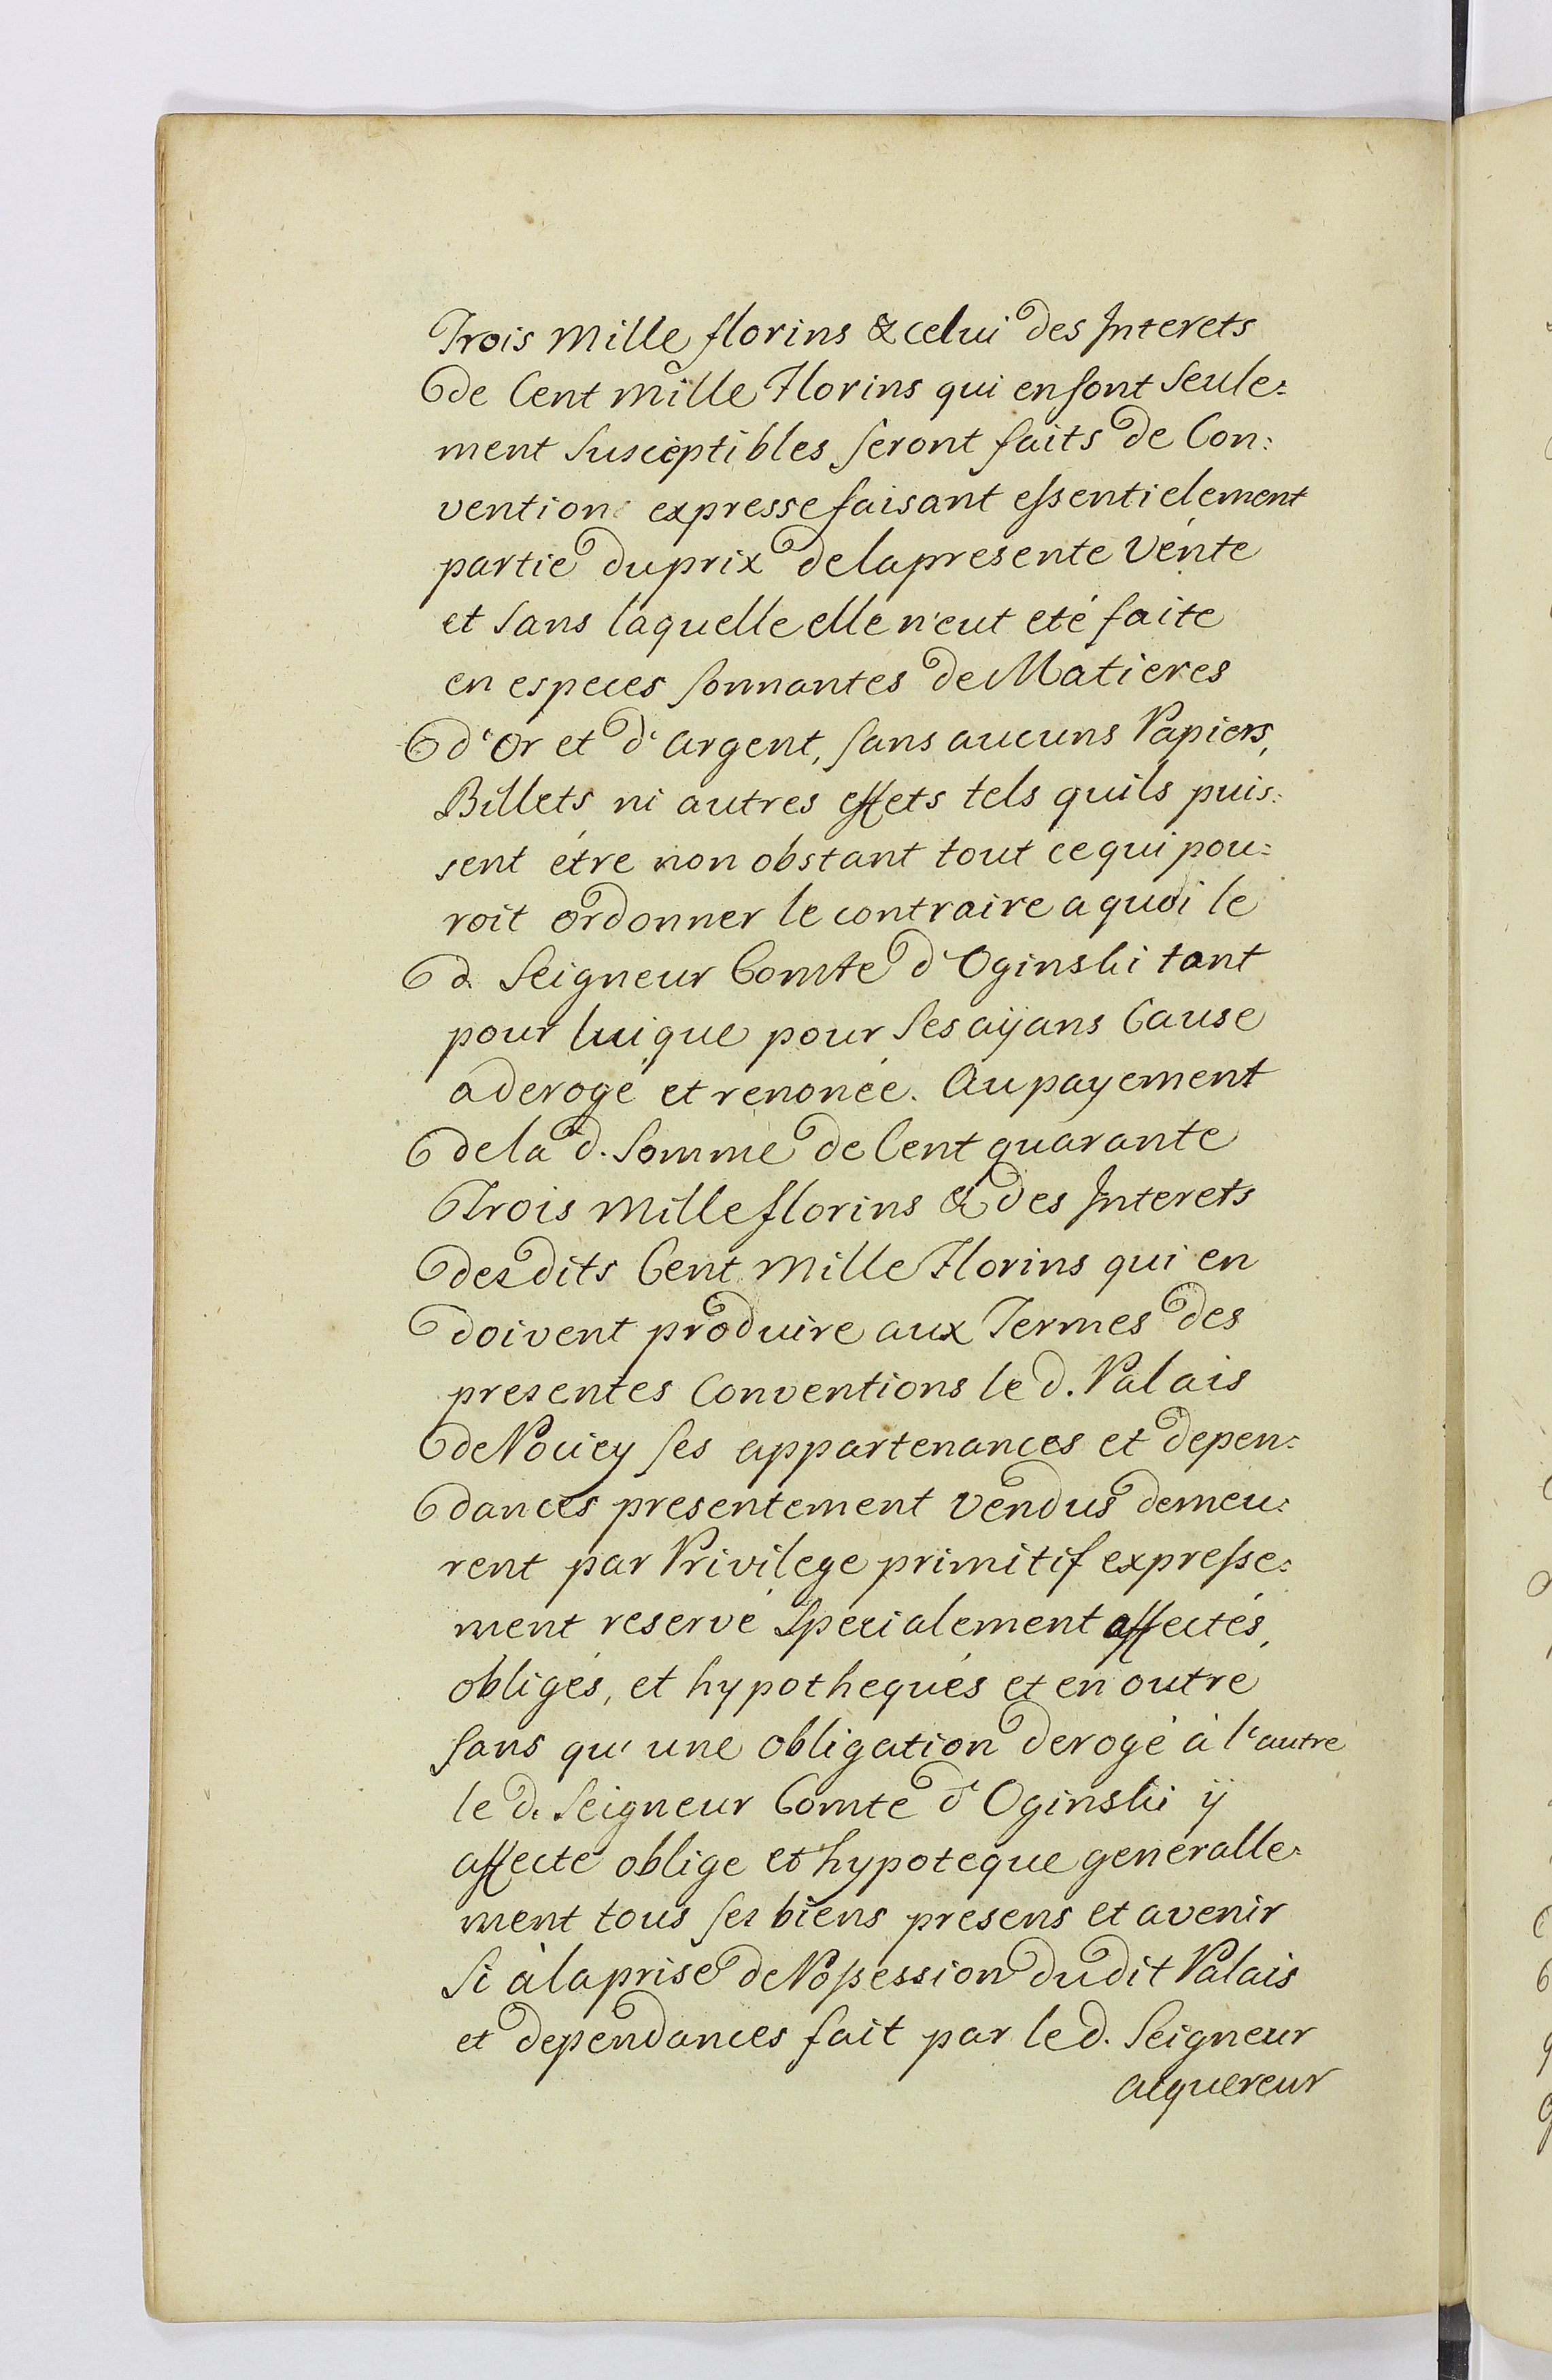 Trois Mille florins & celui des Interets
de Cent mille Florins qui en sont Seule=
ment Susceptibles Seront faits de Con=
vention expresse faisant essentielement
partie du prix de la presente Vente
et Sans laquelle elle n'eut eté faite
en especes Sonnantes de Matieres
d'Or et d'Argent, Sans aucuns Papiers,
Billets ni autres effets tels quils puis=
sent étre non obstant tout ce qui pou=
roit ordonner le contraire a quoi le
d. Seigneur Comte d'Oginski tant
pour lui que pour Ses aÿans Cause
a derogé et renoncé. Au payement
de la d. Somme de Cent quarante
Trois Mille florins & des Interets
desdits Cent Mille Florins qui en
doivent produire aux Termes des
presentes Conventions le d. Palais
de Pouiey Ses appartenances et depen=
dances presentement vendus demeu=
rent par Privilege primitif expresse=
ment reservé Specialement affectés,
obligés, et hypothequés et en outre
Sans qu'une obligation deroge à l'autre
le d. Seigneur Comte d'Oginski ÿ
affecte oblige et hypoteque generalle=
ment tous Ses biens presens et avenir
Si à la prise de Possession dudit Palais
et dependances fait par le d. Seigneur
acquereur